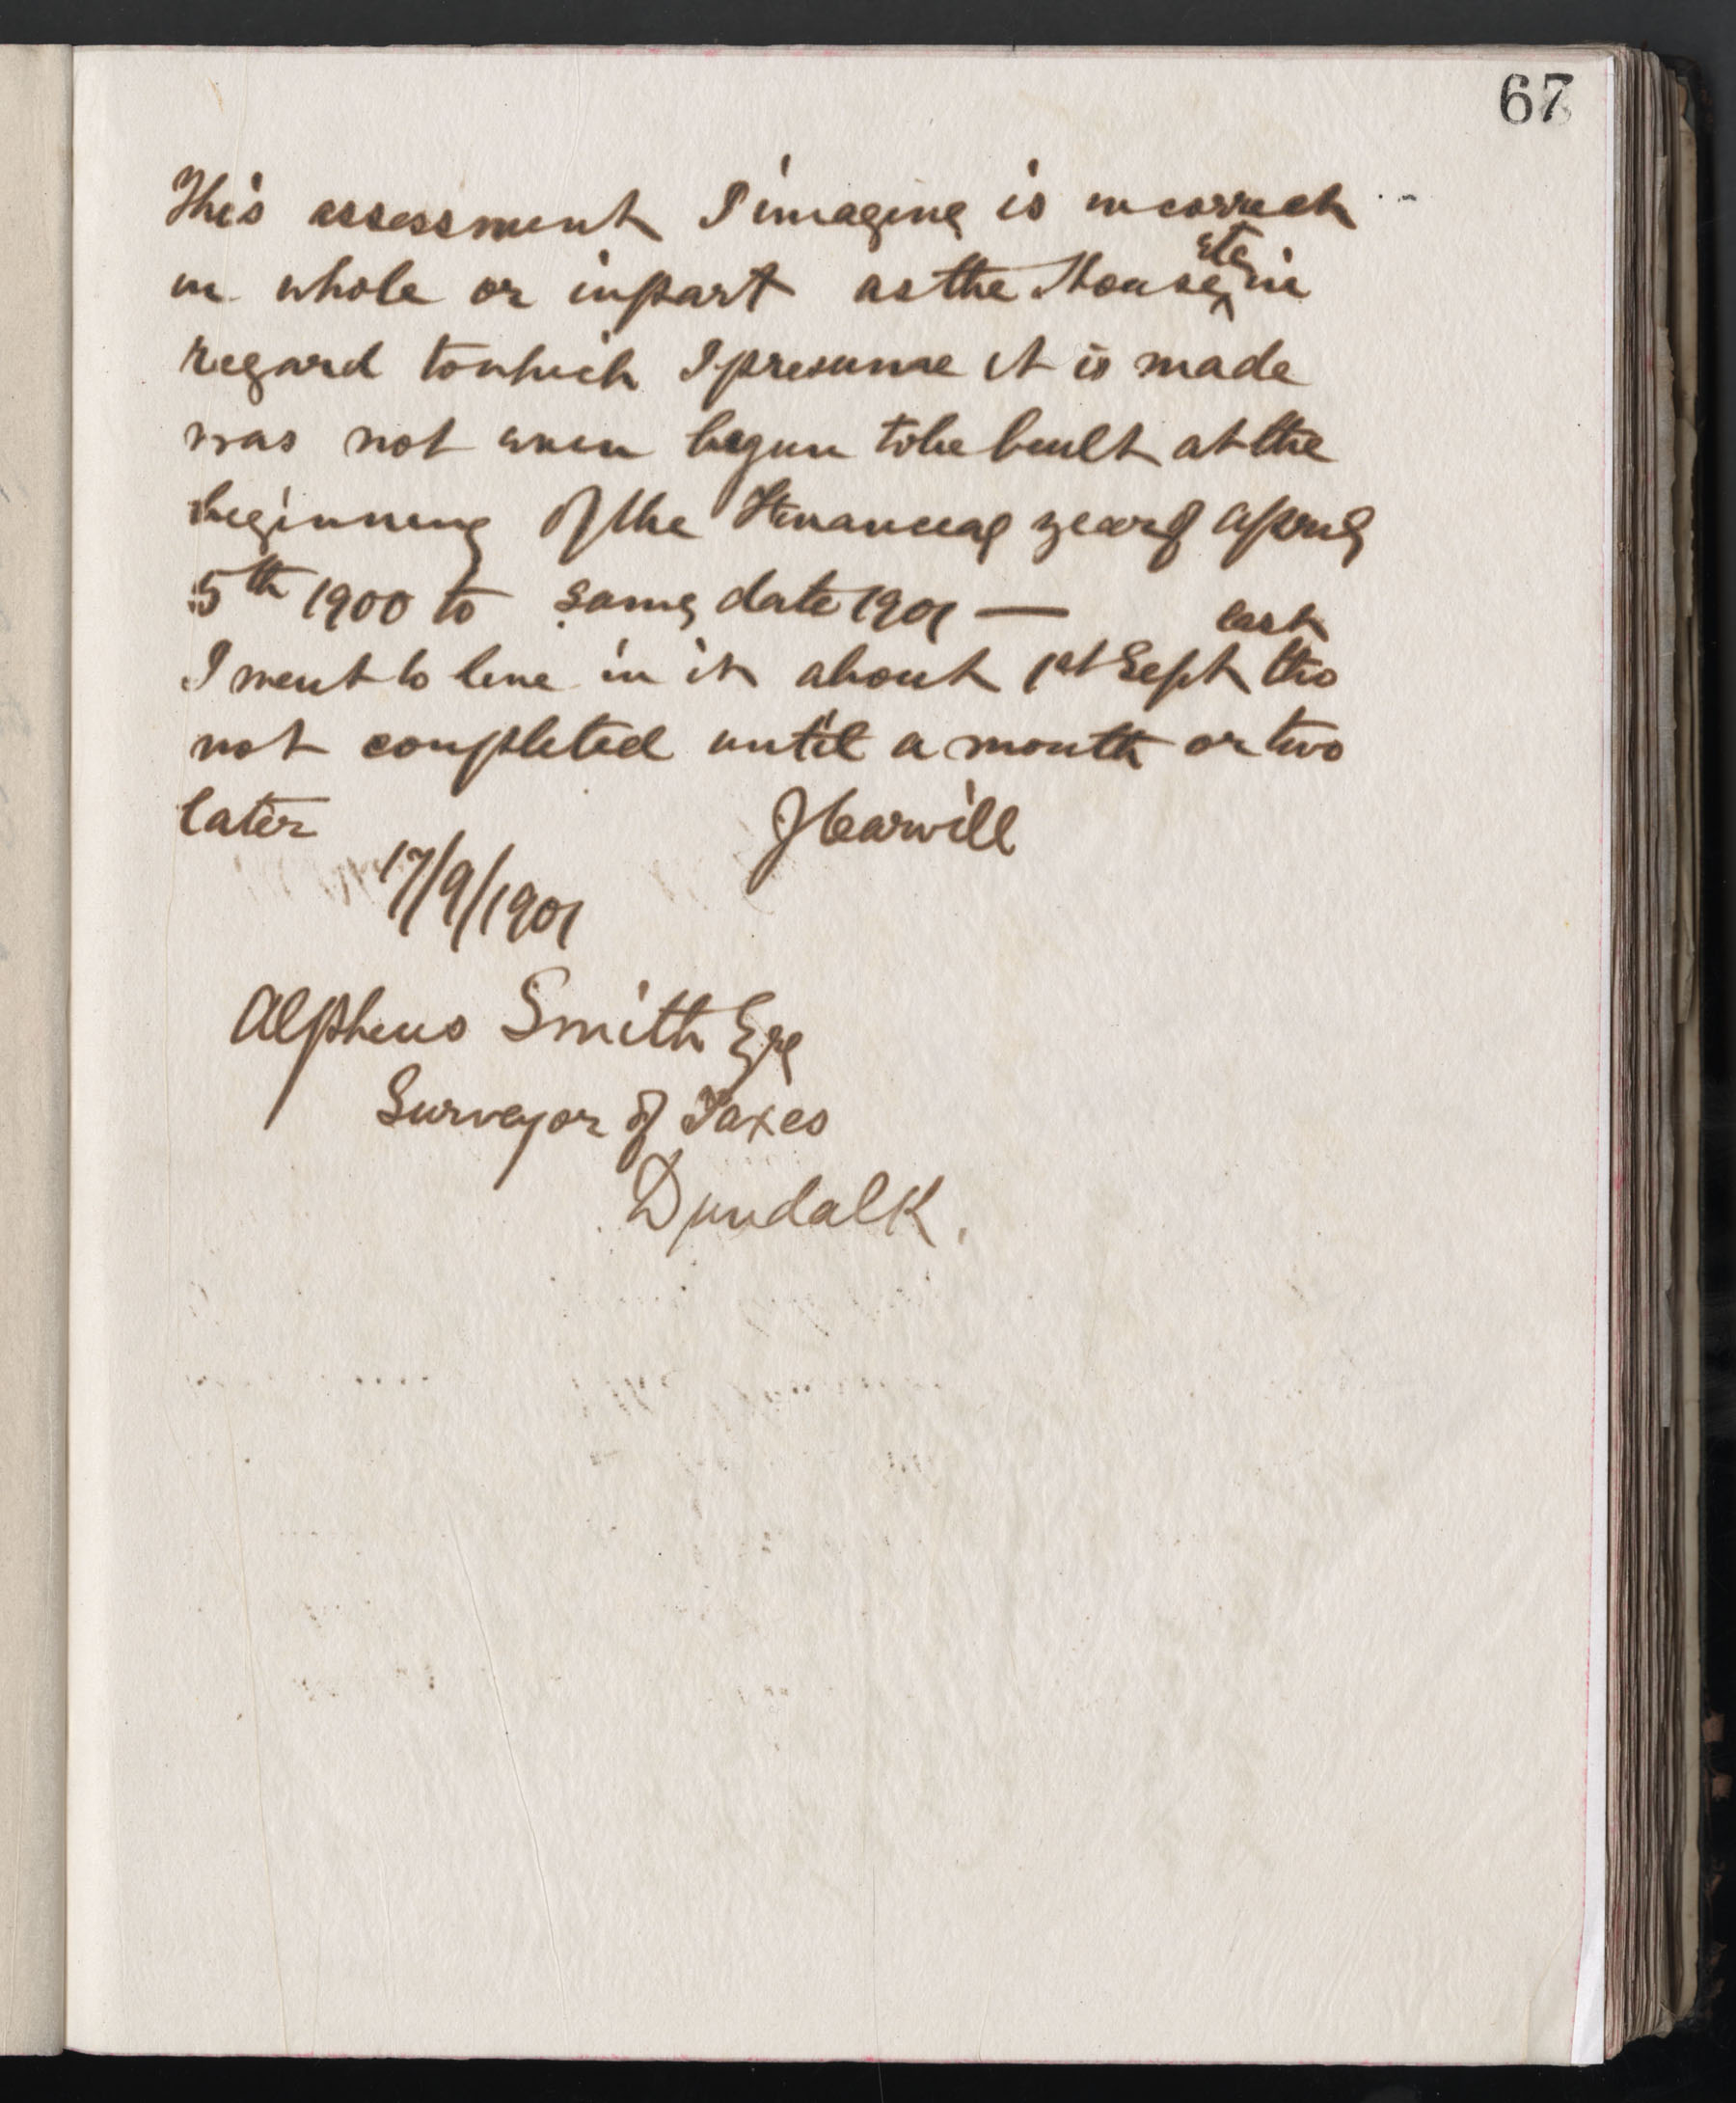 67
This assessment I imagine is incorrect
in whole or in part as the House etc in
regard to which I presume it is made
was not even begun to be built at the
beginning of the Financial year of April
5th 1900 to same date 1901 —
I went to live in it about 1st Sept last tho
not completed until a month or two
later J Carvill
17/9/1901
Alpheus Smith Esq
Surveyor of Taxes
Dundalk.